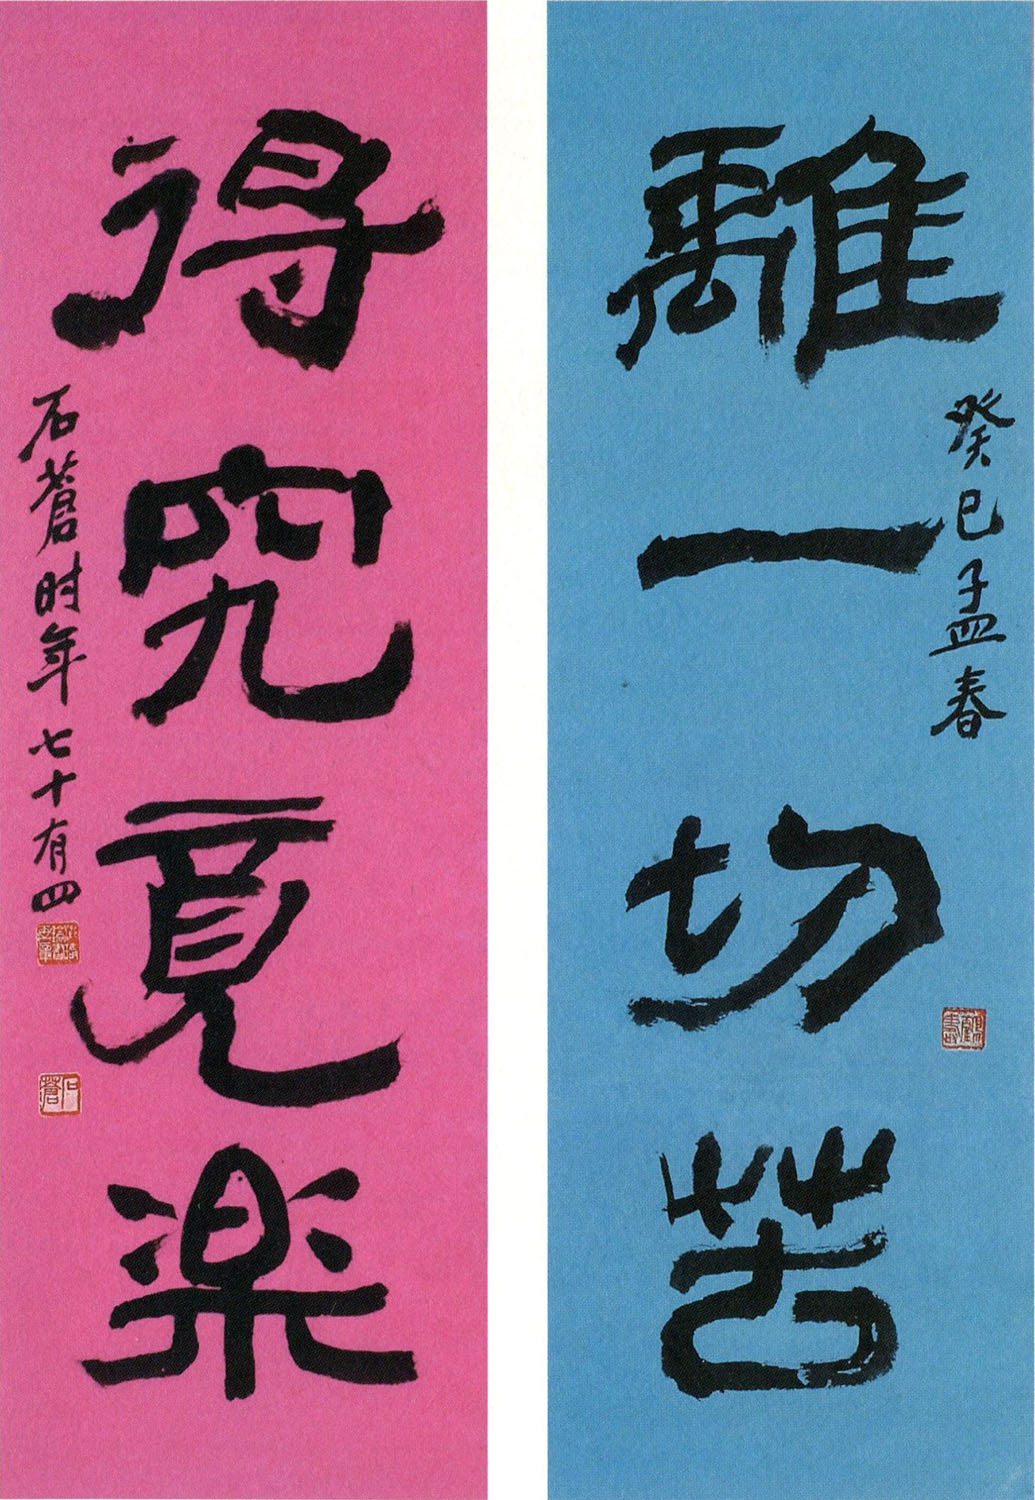 離一切苦
癸巳孟春
得究竟楽
石蒼时年七十有四
石蒼